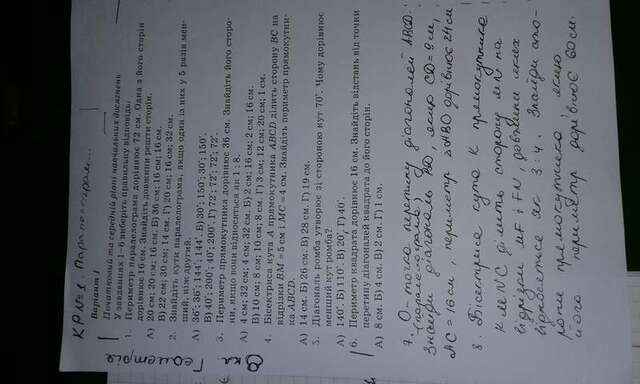 Геометрія
8 кл.
КР №1. Паралелограм...
Варіант 1
Початковий та середній рівні навчальних досягнень
У завданнях 1–6 виберіть правильну відповідь.
1. Периметр паралелограма дорівнює 72 см. Одна з його сторін
дорівнює 16 см. Знайдіть довжини решти сторін.
А) 20 см; 20 см; 16 см. Б) 36 см; 16 см; 16 см.
В) 22 см; 30 см; 14 см. Г) 20 см; 16 см; 32 см.
2. Знайдіть кути паралелограма, якщо один із них у 5 разів мен-
ший, ніж другий.
А) 36°; 36°; 144°; 144°. Б) 30°; 150°; 30°; 150°.
В) 40°; 200°; 40°; 200°. Г) 72°; 72°; 72°; 72°.
3. Периметр прямокутника дорівнює 36 см. Знайдіть його сторо-
ни, якщо вони відносяться як 1 : 8.
А) 4 см; 32 см; 4 см; 32 см. Б) 2 см; 16 см; 2 см; 16 см.
В) 10 см; 8 см; 10 см; 8 см. Г) 3 см; 12 см; 20 см; 1 см.
4. Бісектриса кута А прямокутника ABCD ділить сторону BC на
відрізки BM = 5 см і MC = 4 см. Знайдіть периметр прямокутни-
ка ABCD.
А) 14 см. Б) 26 см. В) 28 см. Г) 19 см.
5. Діагональ ромба утворює зі стороною кут 70°. Чому дорівнює
менший кут ромба?
А) 140°. Б) 110°. В) 20°. Г) 40°.
6. Периметр квадрата дорівнює 16 см. Знайдіть відстань від точки
перетину діагоналей квадрата до його сторін.
А) 8 см. Б) 4 см. В) 2 см. Г) 1 см.
7. О точка перетину діагоналей ABCD.
(паралелограма)
Знайди діагональ BD, якщо CD = 9 см,
AC = 16 см, периметр ΔABO дорівнює 24 см
8. Бісектриса кута К прямокутника
KLNC ділить сторону LN на
відрізки і FN, довжини яких
відносяться як 3 : 4. Знайди сто-
рони прямокутника, якщо
його периметр дорівнює 60 см.